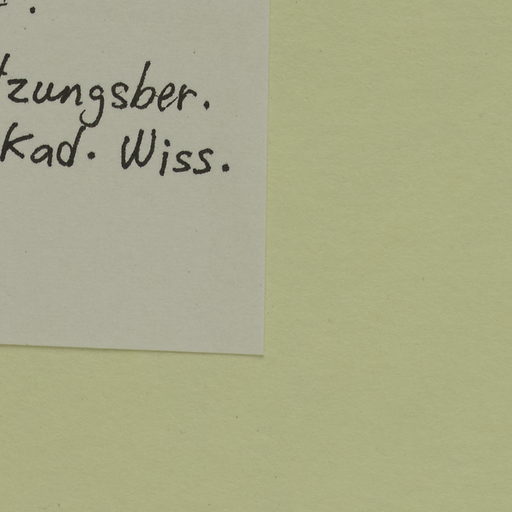 tzungsber.
Kad. Wiss.